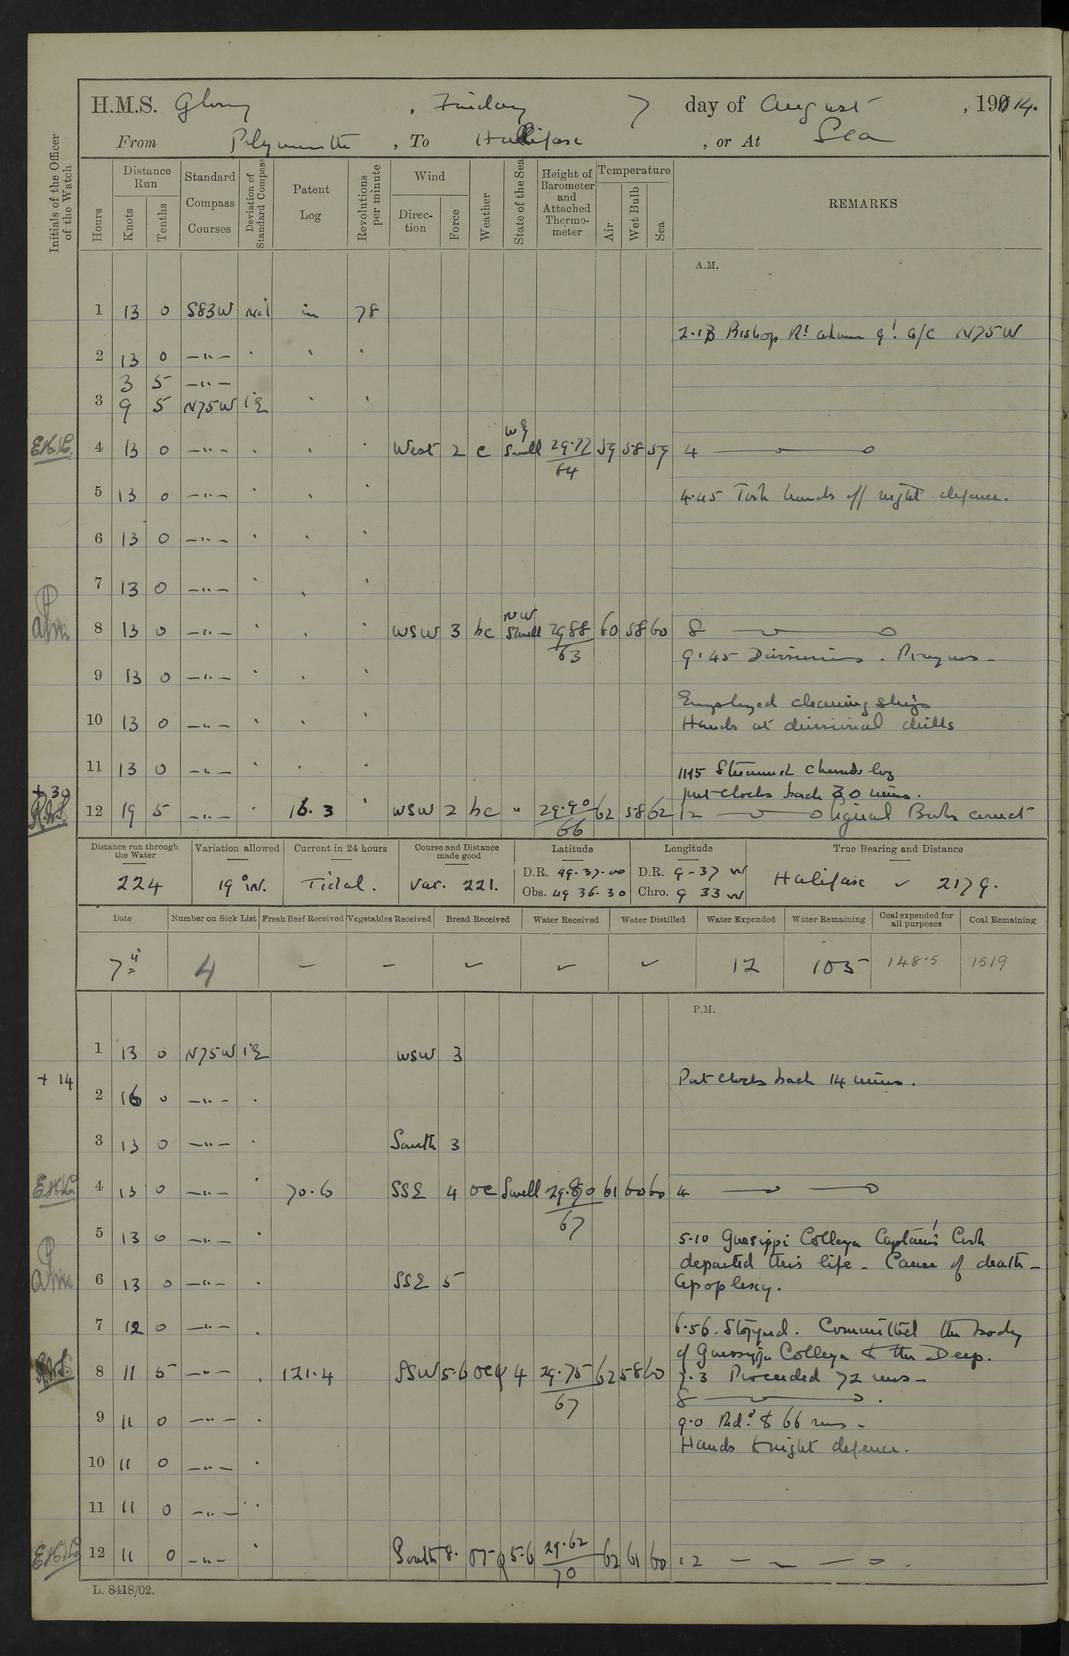 H.M.S. Glory , Friday 7 day of August , 1914.
From Plymouth , To Halifax , or At Sea
Initials of the Officer of the Watch
Hours
Distance Run
Knots
Tenths
Standard Compass Courses
Deviation of Standard Compass
Patent Log
Revolutions per minute
Wind
Direction
Force
Weather
State of the Sea
Height of Barometer and Attached Thermometer
Temperature
Air
Wet Bulb
Sea
REMARKS
A.M.
1 13 0 S83W Nil in 78
Bishop Rk abeam 9'. a/c N75W
2 13 0 —〃—
3 5 —〃—
3 9 5 N75W 1°E
E.H.L. 4 13 0 —〃— West 2 c W'ly Swell 29.72/64 59 58 59 4
5 13 0 —〃—
4.45 Took hands off night defence.
6 13 0 —〃—
7 13 0 —〃—
8 13 0 —〃— WSW 3 bc NW Swell 29.88/63 60 58 60 8
9.45 Divisions. Prayers
9 13 0 —〃—
Employed cleaning ship
10 13 0 —〃— Hands at divisional drills
11 13 0 —〃—
1145 Streamed Cherubs log
+30 put clocks back 30 mins.
12 19 5 —〃— 16.3 WSW 2 bc 〃 29.90/66 62 58 62 12 Signal Books correct
Distance run through the Water
Variation allowed
Current in 24 hours
Course and Distance made good
Latitude
Longitude
True Bearing and Distance
224 19°W. Tidal. Var. 221. D.R. 49-37-00 D.R. 9-37 W Halifax 2179.
Obs. 49 36-30 Chro. 9 33 W
Date
Number on Sick List
Fresh Beef Received
Vegetables Received
Bread Received
Water Received
Water Distilled
Water Expended
Water Remaining
Coal expended for all purposes
Coal Remaining
7th 4 — — — — — 12 105 148.5 1519
P.M.
1 13 0 N75W 1°E WSW 3
+ 14 Put clocks back 14 mins.
2 16 0 —〃—
3 13 0 —〃— South 3
E.H.L. 4 13 0 —〃— 70.6 SSE 4 oc Swell 29.80/67 61 60 60 4
5 13 0 —〃—
5.10 Guesippi Colleya Captain's Cook
departed this life — Cause of death —
6 13 0 —〃— SSE 5 Apoplexy.
7 12 0 —〃—
6.56. Stopped. Committed the body
of Guessippi Colleya to the Deep.
8 11 5 —〃— 121.4 SSW 5-6 ocq 4 29.75/67 62 58 60 7.3 Proceeded 72 revs —
8
9 11 0 —〃— 9.0 Red. to 66 revs —
Hands to night defence.
10 11 0 —〃—
11 11 0 —〃—
E.H.L. 12 11 0 —〃— South 8. 5.6 29.62/70 62 61 60 12
L. 8418/02.